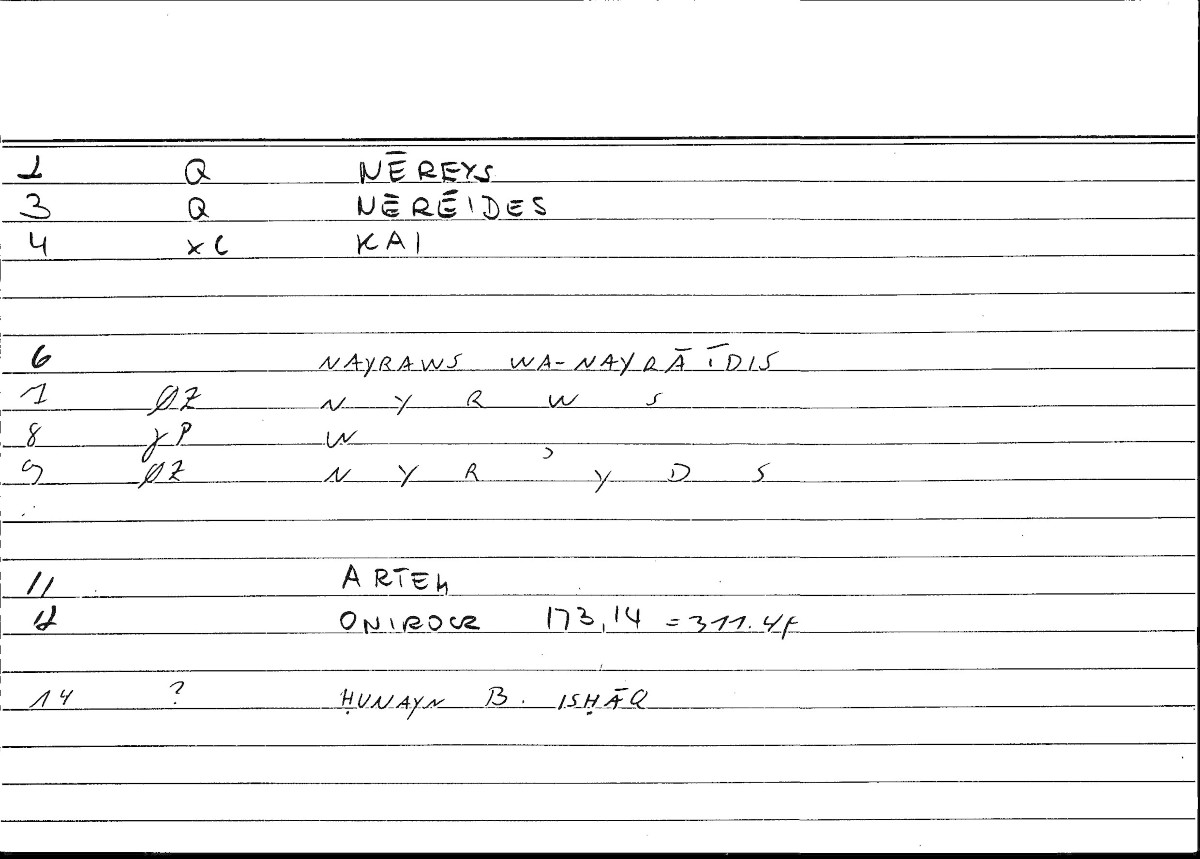 1 Q NĒREYS
3 Q NĒRĒIDES
4 xC KAI
6 NAYRAWS WA-NAYRĀĪDIS
7 ØZ N Y R W S
8 γP W
9 ØZ N Y R ʾ Y D S
11 ARTEM
12 ONIROCR 173,14 = 311.4f
14 ? ḤUNAYN B. ISḤĀQ